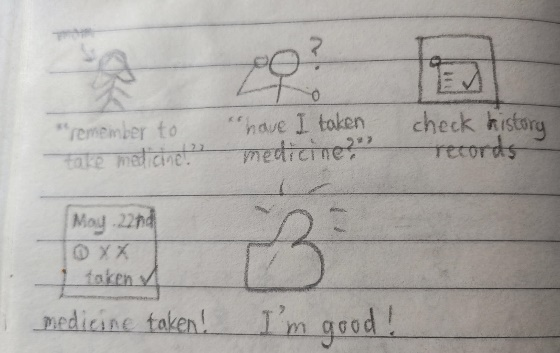 mom
?
"remember to
take medicine!"
"have I taken
medicine?"
check history
records
May. 22nd
① X X
taken ✓
medicine taken!
I'm good!